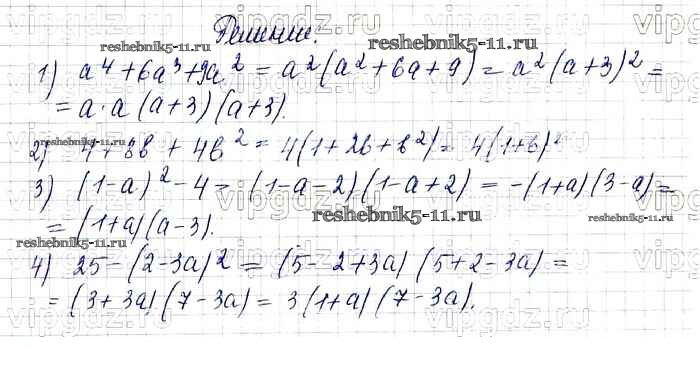 Решение:
1) a⁴ + 6a³ + 9a² = a²(a² + 6a + 9) = a²(a+3)² =
= a · a (a+3)(a+3).
2) 4 + 8b + 4b² = 4(1 + 2b + b²) = 4(1+b)²
3) (1-a)² - 4 = (1-a-2)(1-a+2) = -(1+a)(3-a) =
= (1+a)(a-3).
4) 25 - (2-3a)² = (5-2+3a)(5+2-3a) =
= (3+3a)(7-3a) = 3(1+a)(7-3a).
vipgdz.ru
reshebnik5-11.ru
reshebnik5-11.ru
reshebnik5-11.ru
reshebnik5-11.ru
reshebnik5-11.ru
reshebnik5-11.ru
vipgdz.ru